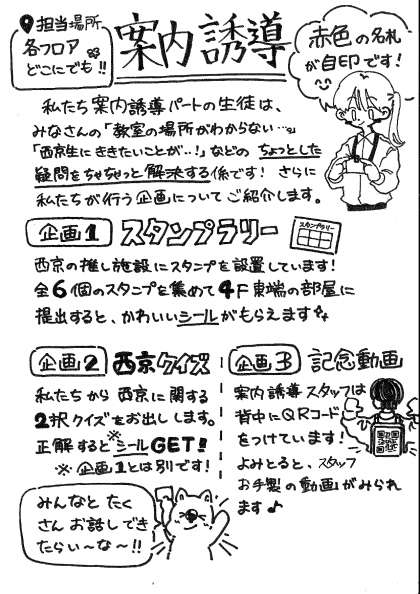 担当場所
各フロア
どこにでも!!
案内誘導
赤色の名札
が目印です!
私たち案内誘導パートの生徒は、
みなさんの「教室の場所がわからない…。」
「西京生にききたいことが…!」などのちょっとした
疑問をちゃちゃっと解決する係です! さらに
私たちが行う企画についてご紹介します。
企画1 スタンプラリー
スタンプラリー
西京の推し施設にスタンプを設置しています!
全6個のスタンプを集めて4F東端の部屋に
提出すると、かわいいシールがもらえます
企画2 西京クイズ
私たちから西京に関する
2択クイズをお出しします。
正解すると※シールGET!!
※企画1とは別です!
企画3 記念動画
案内誘導スタッフは
背中にQRコード
をつけています!
よみとると、スタッフ
お手製の動画がみられ
ます♪
みんなとたく
さんお話しでき
たらい〜な〜!!